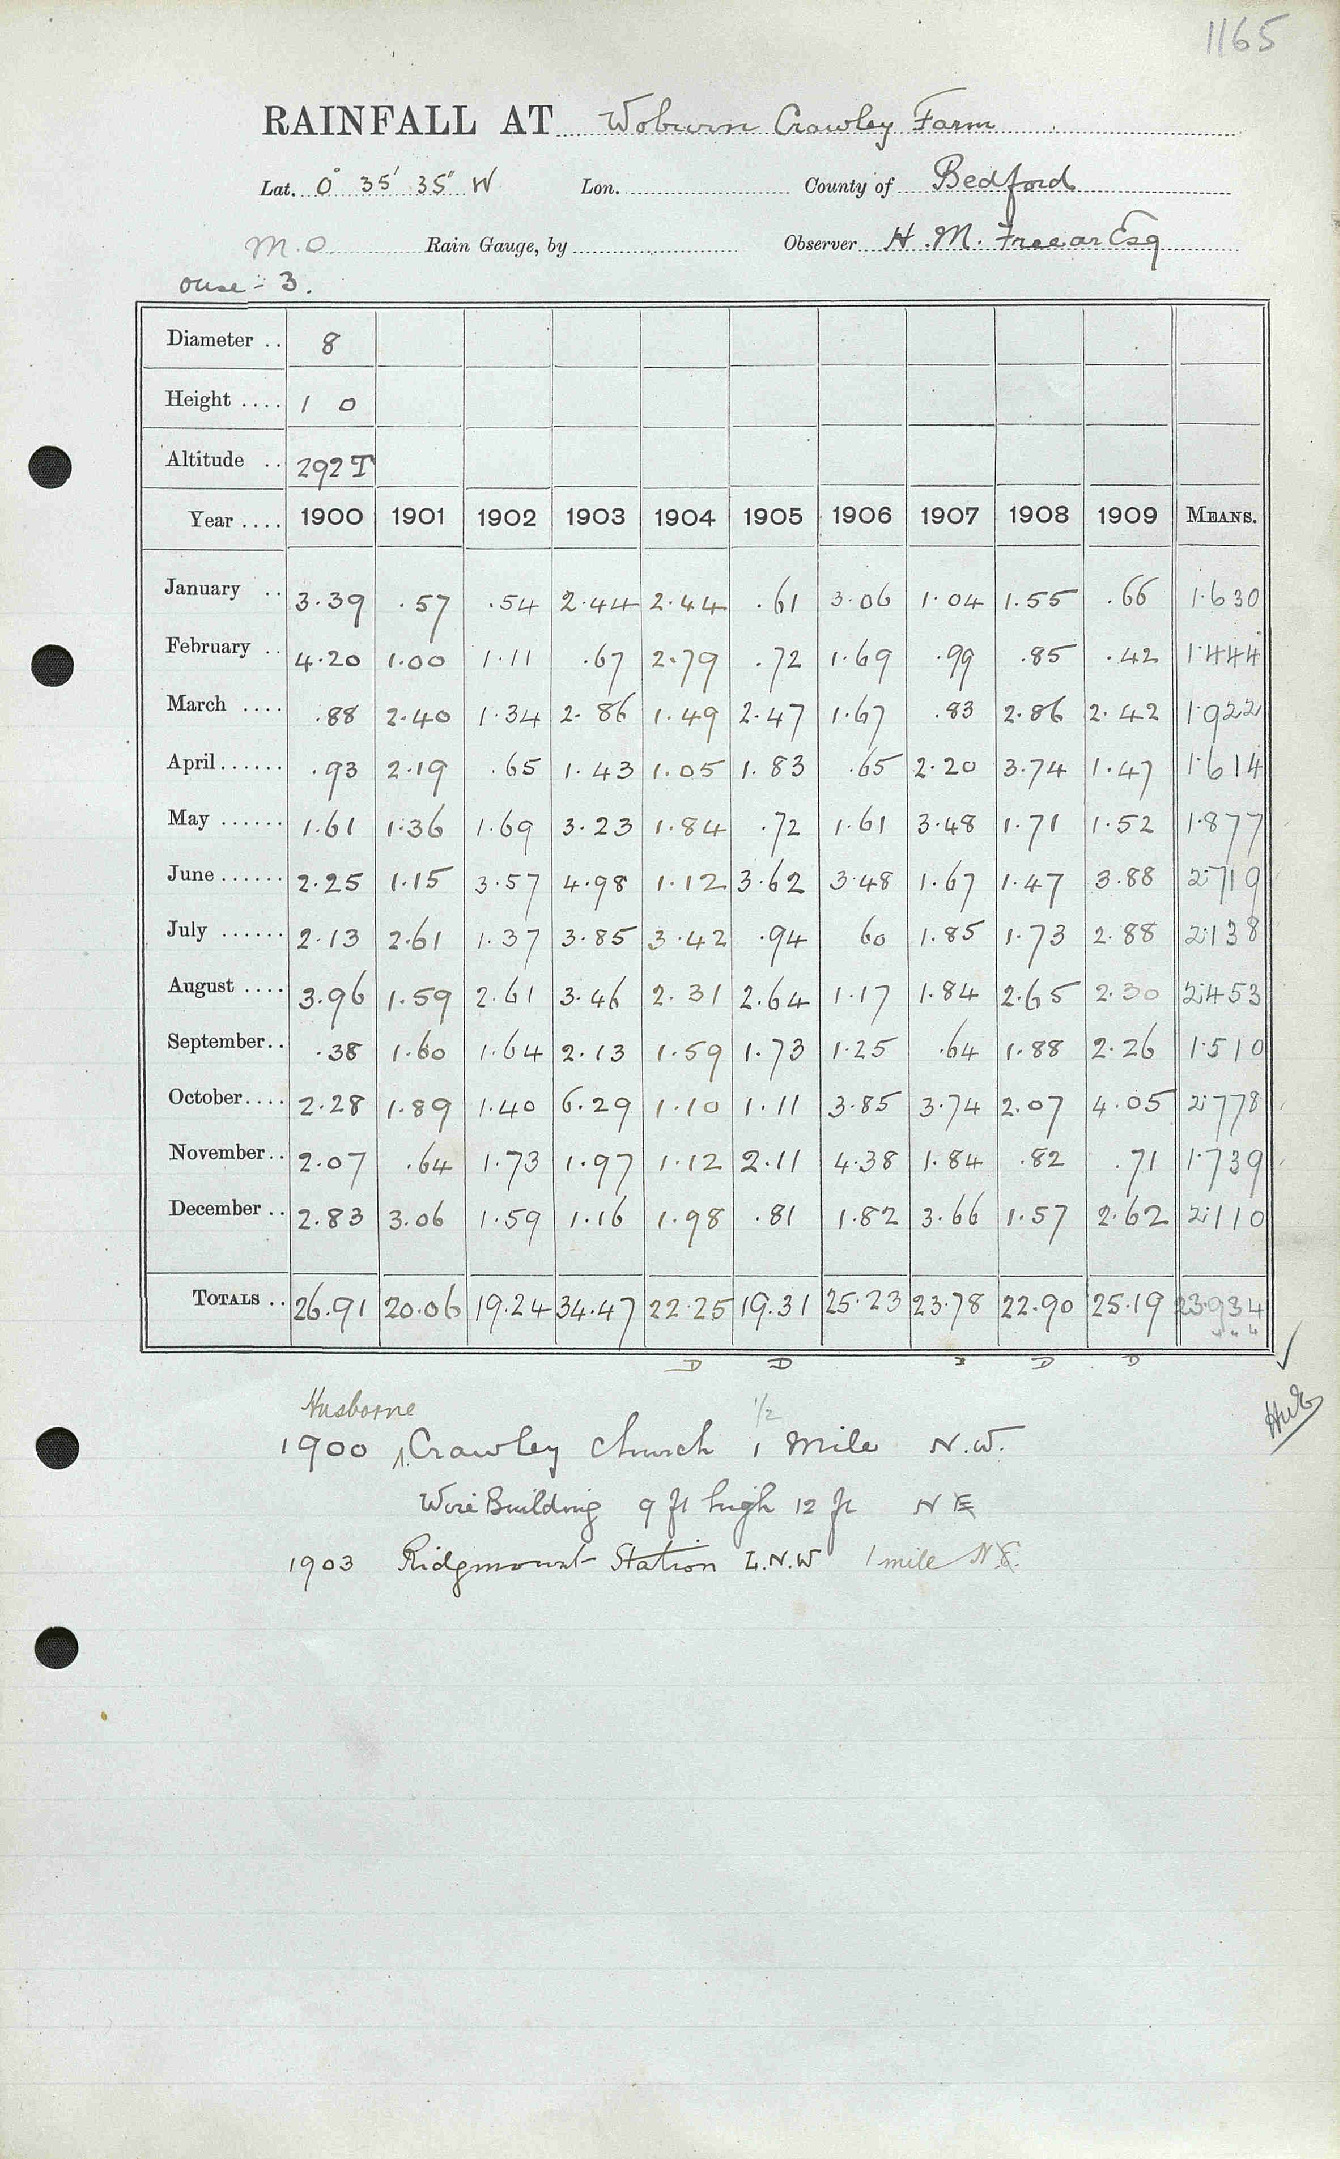 1165
RAINFALL AT Woburn Crawley Farm
Lat. 0° 35' 35" W Lon. County of Bedford
M.O. Rain Gauge, by Observer H. M. Freear Esq
Ouse - 3.
Diameter .. 8
Height .... 1 0
Altitude .. 292 T
Year .... 1900 1901 1902 1903 1904 1905 1906 1907 1908 1909 MEANS.
January .. 3.39 .57 .54 2.44 2.44 .61 3.06 1.04 1.55 .66 1.630
February .. 4.20 1.00 1.11 .67 2.79 .72 1.69 .99 .85 .42 1.444
March .... .88 2.40 1.34 2.86 1.49 2.47 1.67 .83 2.86 2.42 1.922
April...... .93 2.19 .65 1.43 1.05 1.83 .65 2.20 3.74 1.47 1.614
May ...... 1.61 1.36 1.69 3.23 1.84 .72 1.61 3.48 1.71 1.52 1.877
June...... 2.25 1.15 3.57 4.98 1.12 3.62 3.48 1.67 1.47 3.88 2.719
July ...... 2.13 2.61 1.37 3.85 3.42 .94 60 1.85 1.73 2.88 2.138
August .... 3.96 1.59 2.61 3.46 2.31 2.64 1.17 1.84 2.65 2.30 2.453
September.. .38 1.60 1.64 2.13 1.59 1.73 1.25 .64 1.88 2.26 1.510
October.... 2.28 1.89 1.40 6.29 1.10 1.11 3.85 3.74 2.07 4.05 2.778
November.. 2.07 .64 1.73 1.97 1.12 2.11 4.38 1.84 .82 .71 1.739
December .. 2.83 3.06 1.59 1.16 1.98 .81 1.82 3.66 1.57 2.62 2.110
TOTALS .. 26.91 20.06 19.24 34.47 22.25 19.31 25.23 23.78 22.90 25.19 23.934
D D D D
Husborne
1/2
1900 Crawley Church 1 Mile N.W.
Wire Building 9 ft high 12 ft N E
1903 Ridgmount Station L.N.W 1 mile N E.